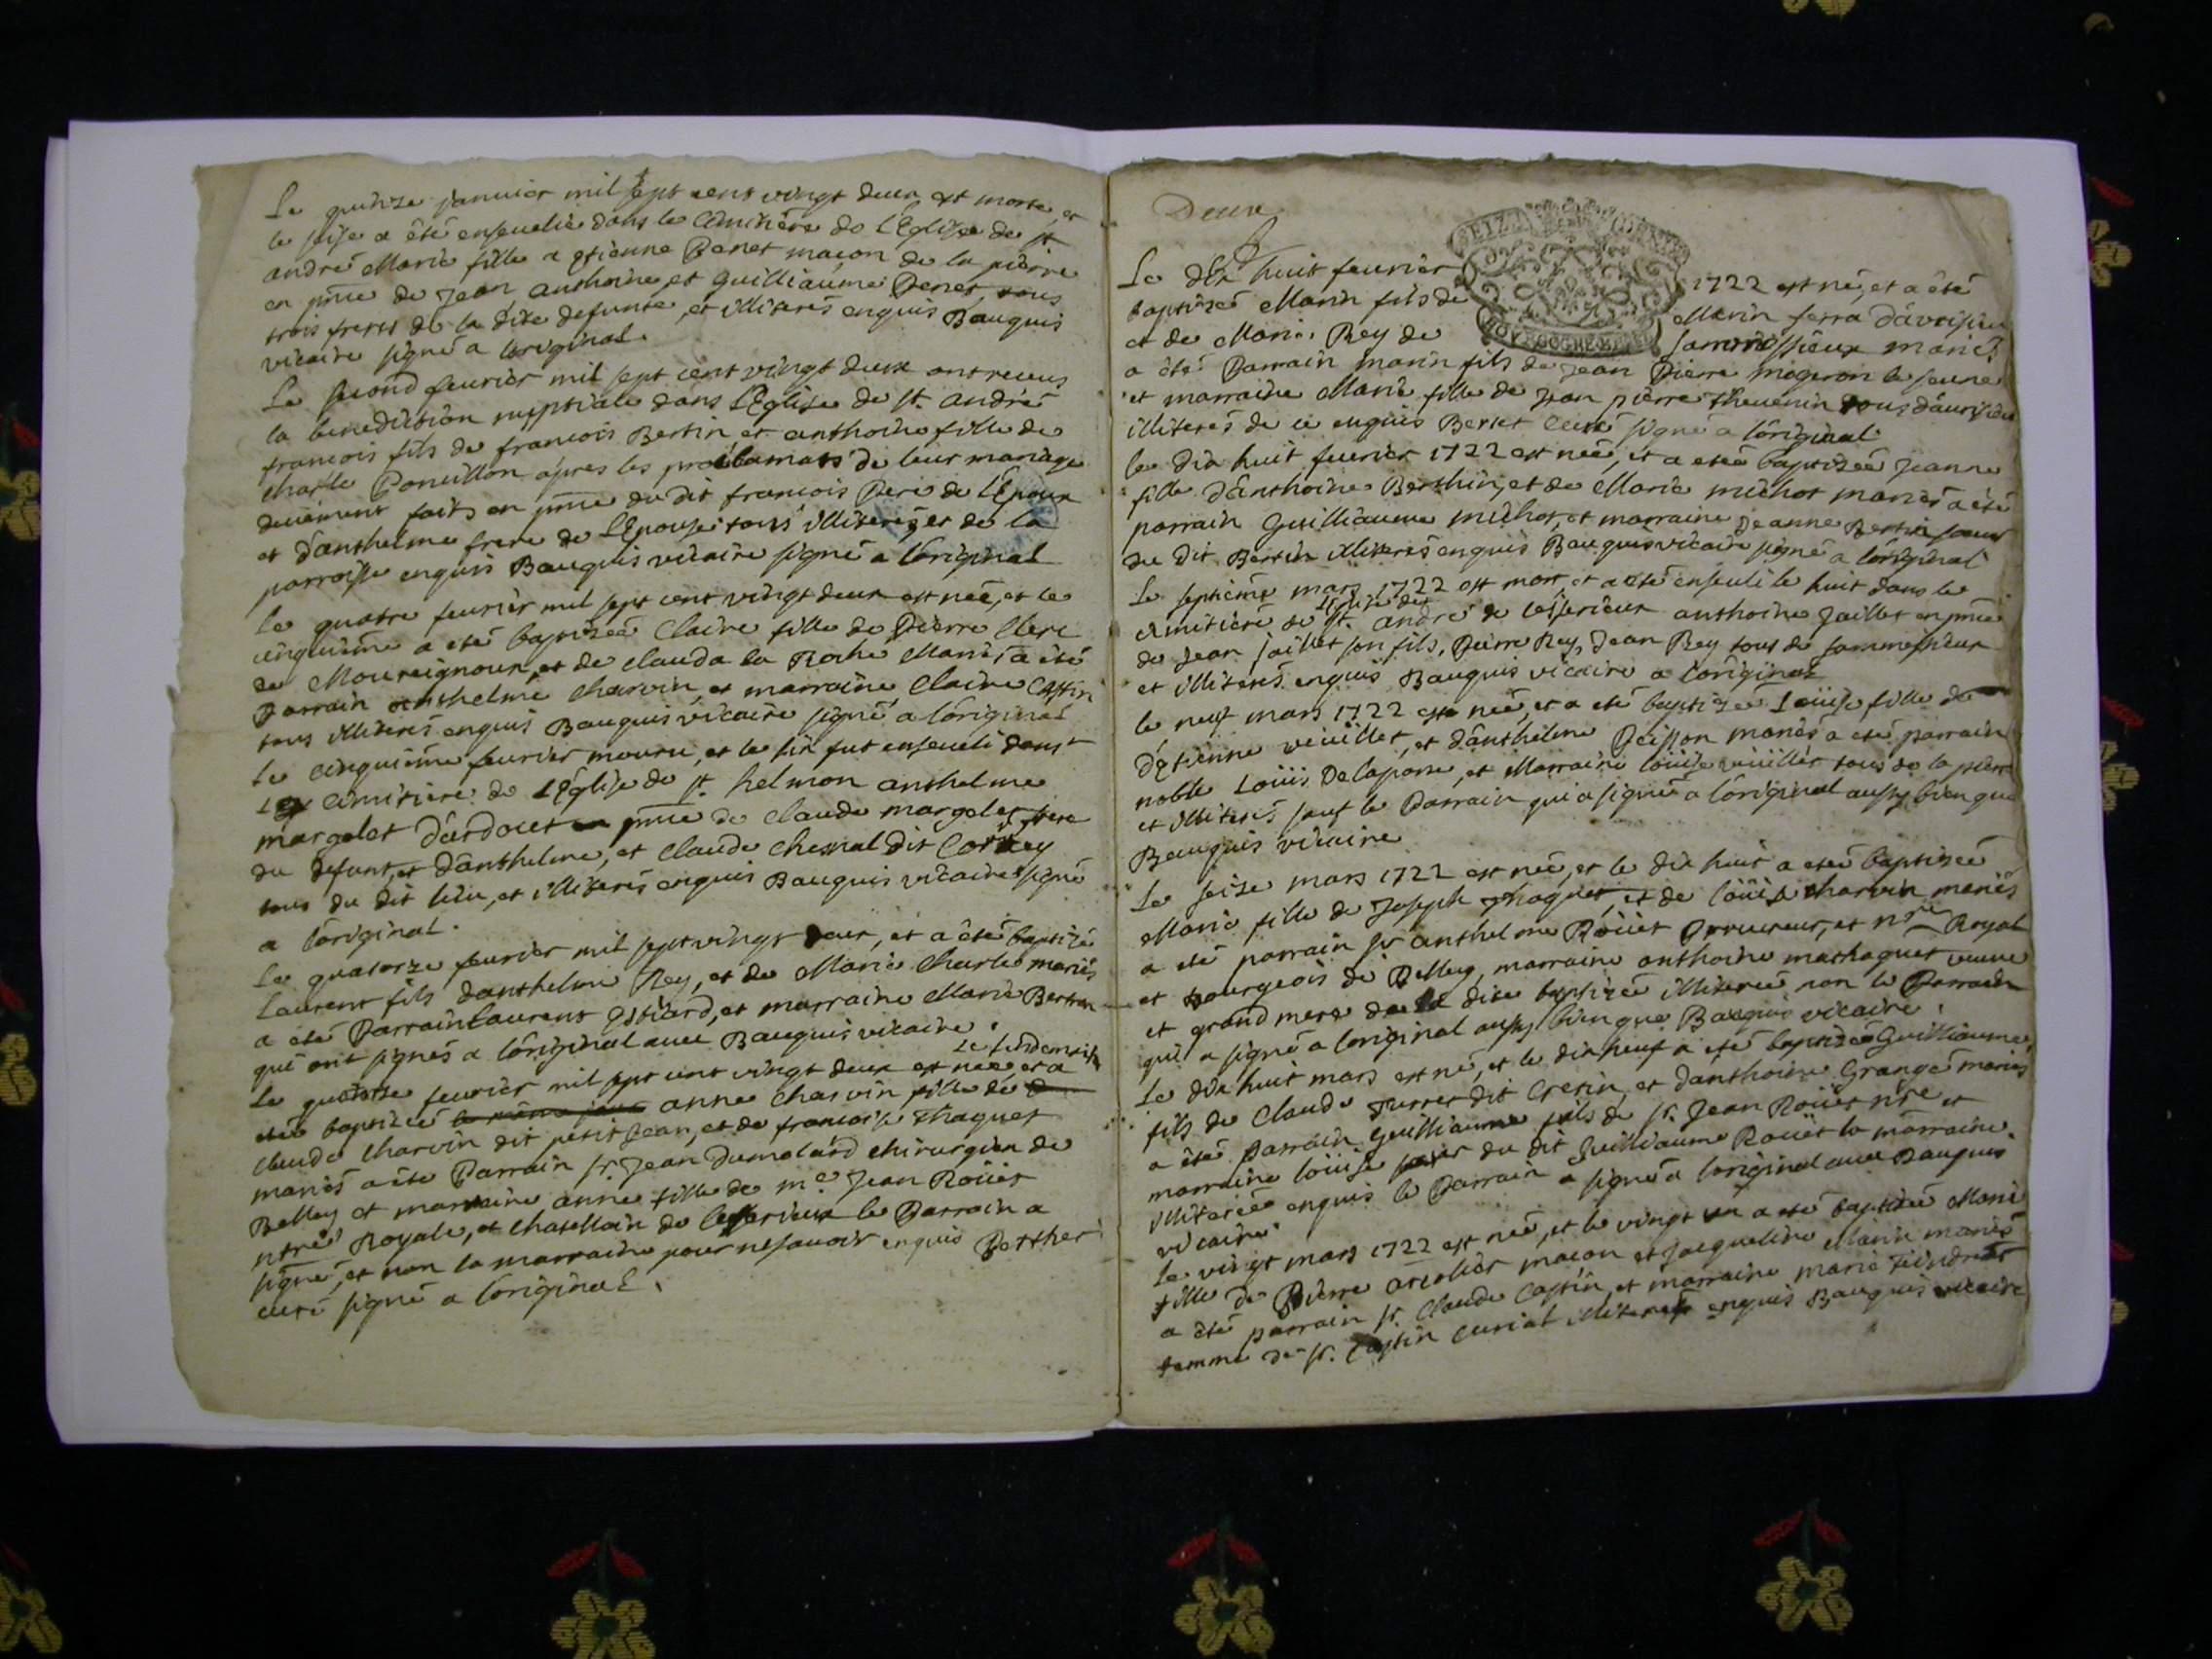 Le quinze januier mil sept cent vingt deux est morte, et
le seise a été enseuelie dans le Cimitiére de L'Eglise de st
andré Marie fille a etienne Benet maçon de la pierre
en pnce de Jean, anthoine, et guilliaúme Benet, tous
trois freres de la dite defunte, et illiterés enquis Bauquis
vicaire signé a loriginal.
Le second feurier mil sept cent vingt deux ont receus
la benediction nupptiale dans L'Eglise de st. andré
francois fils de francois Bertin, et anthoine fille de
Charle Ponuillon aprés les proclamats de leur mariage
deuëment faits en pnce du dit francois Pere de L'Epoux
et d'anthelme frere de L'Epouse tous illiterés, et de la
parroisse enquis Bauquis vicaire signé a l'original
Le quatre feurier mil sept cent vingt deux est née, et le
cinquième a eté baptizeé Claire fille de Pierre Clerc
de Moureignoux, et de Clauda la Roche Mariés, a été
Parrain anthelme Charvin, et marraine Claire Castin
tous illiterés enquis Bauquis vicaire signé a l'original
Le cinquiéme feurier mouru, et le six fut enseueli dans
Le Cimitiere de L'Eglise de st. helmon anthelme
margelet d'ardoset en pnce de Claude margelet frere
du defunt, et d'anthelme, et Claude Chesnal dit Corney
tous du dit lieu, et illiterés enquis Bauquis vicaire signé
a l'original.
Le quatorze feurier mil sept vingt deux, et a été baptizé
Laurent fils danthelme Rey, et de Marie Charle mariés
a eté Parrain Laurent Estiard, et marraine Marie Bertin
qui ont signés a l'original auec Bauquis vicaire.
Le quatorze feurier mil sept cent vingt deux est neé et a Le lendemain
eté baptizeé le même jour anne Charvin fille de
Claude Charvin dit petit Jean, et de francoise Thaquet
mariés a éte Parrain sr. Jean Dumolard chirurgien de
Belley et marraine anne fille de me Jean Roüet
ntre Royale, et Chatellain de Lesserieux le Parrain a
signé, et non la marraine pour ne sauoir enquis Betther
curé signé a l'original.
Deux
Le dix huit feurier 1722 est né, et a été
baptizé Marin fils de Marin ferra d'avrisieu
et de Marie Rey de Sammessieux mariés
a été Parrain marin fils de Jean Pierre mogeron le jeune
et marraine Marie fille de Jean pierre Thevenin tous d'aurisieu
illiterés de ce enquis Better Curé signé a l'original
le dix huit feurier 1722 est neé, et a eteé baptizeé Jeanne
fille d'anthoine Berthin, et de Marie michot mariés a été
parrain Guilliaume michot, et marraine Jeanne Bertin soeur
du dit Bertin illiterés enquis Bauquis vicaire signé a l'original
Le septiéme mars 1722 est mort, et a eté enseueli le huit dans le
cimitiére de L'Eglise de st. andre de Lesserieux anthoine Jaillet en pnce
de Jean jaillet son fils, Pierre Rey, Jean Rey tous de sammessieux
et illiterés enquis Bauquis vicaire a l'original
le neuf mars 1722 est neé, et a eté baptizeé Loüise fille de
d'etienne veüillet, et d'anthelme Peisson mariés a eté parrain
noble Loüis Delaporre, et Marraine loüise veüillet tous de la pierre
et illiterés sauf le Parrain qui a signé a l'original aussy bien que
Bauquis vicaire
Le seize mars 1722 est neé, et le dix huit a eteé baptizeé
Marie fille de Joseph Thoquet, et de Loüise Charvin mariés
a eté parrain sr anthelme Roüet Procureur, et nre Royal
et bourgeois de Belley, marraine anthoine machoquet veuue
et grand mere de la dite baptizeé illitereé non le Parrain
qui a signé a l'original aussy bien que Bauquis vicaire.
Le dix huit mars est né, et le dix neuf a eté baptizé Guilliaume
fils de Claude Turrer dit Cretin, et d'anthoine Grange mariés
a été parrain Guilliaume fils de sr. Jean Roüet nre et
marraine loüise soeur du dit Guilliaume Roüet la marraine
illitereé enquis le Parrain a signé a l'original auec Bauquis
vicaire
Le vingt mars 1722 est neé, et le vingt un a eté baptizeé Marie
fille de Pierre arcolier maçon et Jacqueline Marin mariés
a été parrain sr. Claude Castin, et marraine marie
femme de sr. Castin Curial illiterés enquis Bauquis vicaire